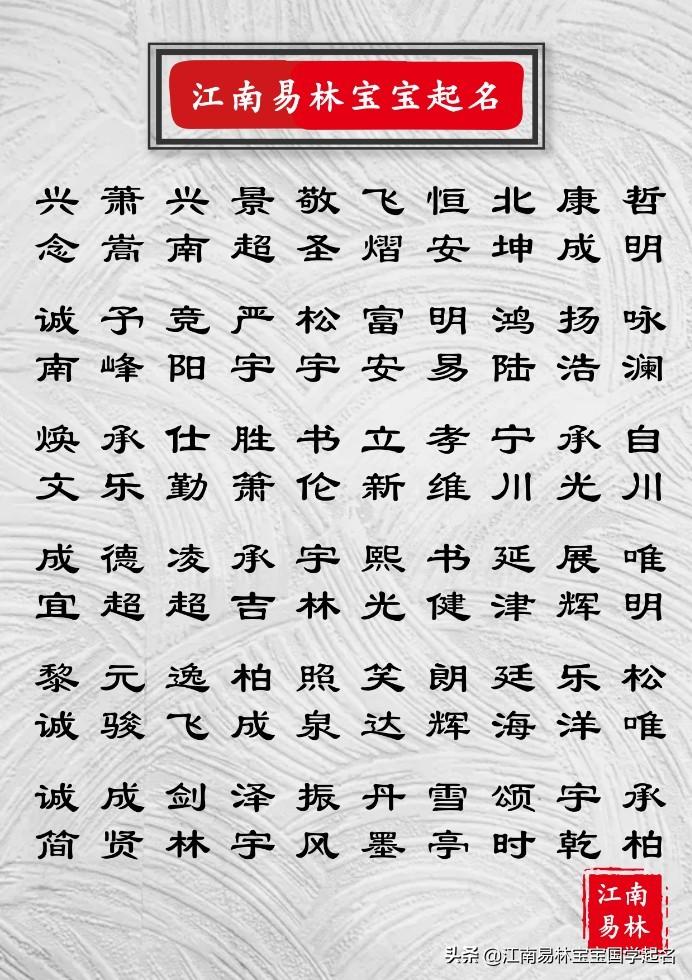 江南易林宝宝起名
兴 萧 兴 景 敬 飞 恒 北 康 哲
念 嵩 南 超 圣 熠 安 坤 成 明
诚 予 竞 严 松 富 明 鸿 扬 咏
南 峰 阳 宇 宇 安 易 陆 浩 澜
焕 承 仕 胜 书 立 孝 宁 承 自
文 乐 勤 萧 伦 新 维 川 光 川
成 德 凌 承 宇 熙 书 延 展 唯
宜 超 超 吉 林 光 健 津 辉 明
黎 元 逸 柏 照 笑 朗 廷 乐 松
诚 骏 飞 成 泉 达 辉 海 洋 唯
诚 成 剑 泽 振 丹 雪 颂 宇 承
简 贤 林 宇 风 墨 亭 时 乾 柏
江南
易林
头条 @江南易林宝宝国学起名